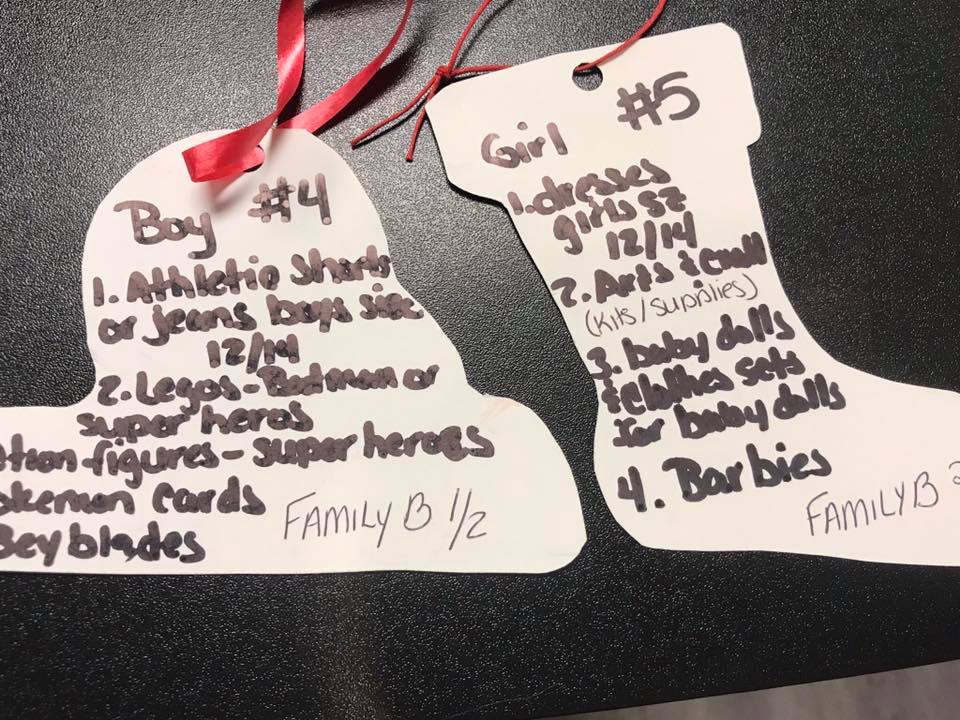 Boy #4
1. Athletic Shorts
or jeans boys size
12/14
2. Legos - Batman or
super heros
figures - super heroes
okemon cards
Beyblades
FAMILY B 1/2
Girl #5
1. dresses
girls sz
12/14
2. Arts & craft
(kits/supplies)
3. baby dolls
& clothes sets
for baby dolls
4. Barbies
FAMILY B 2